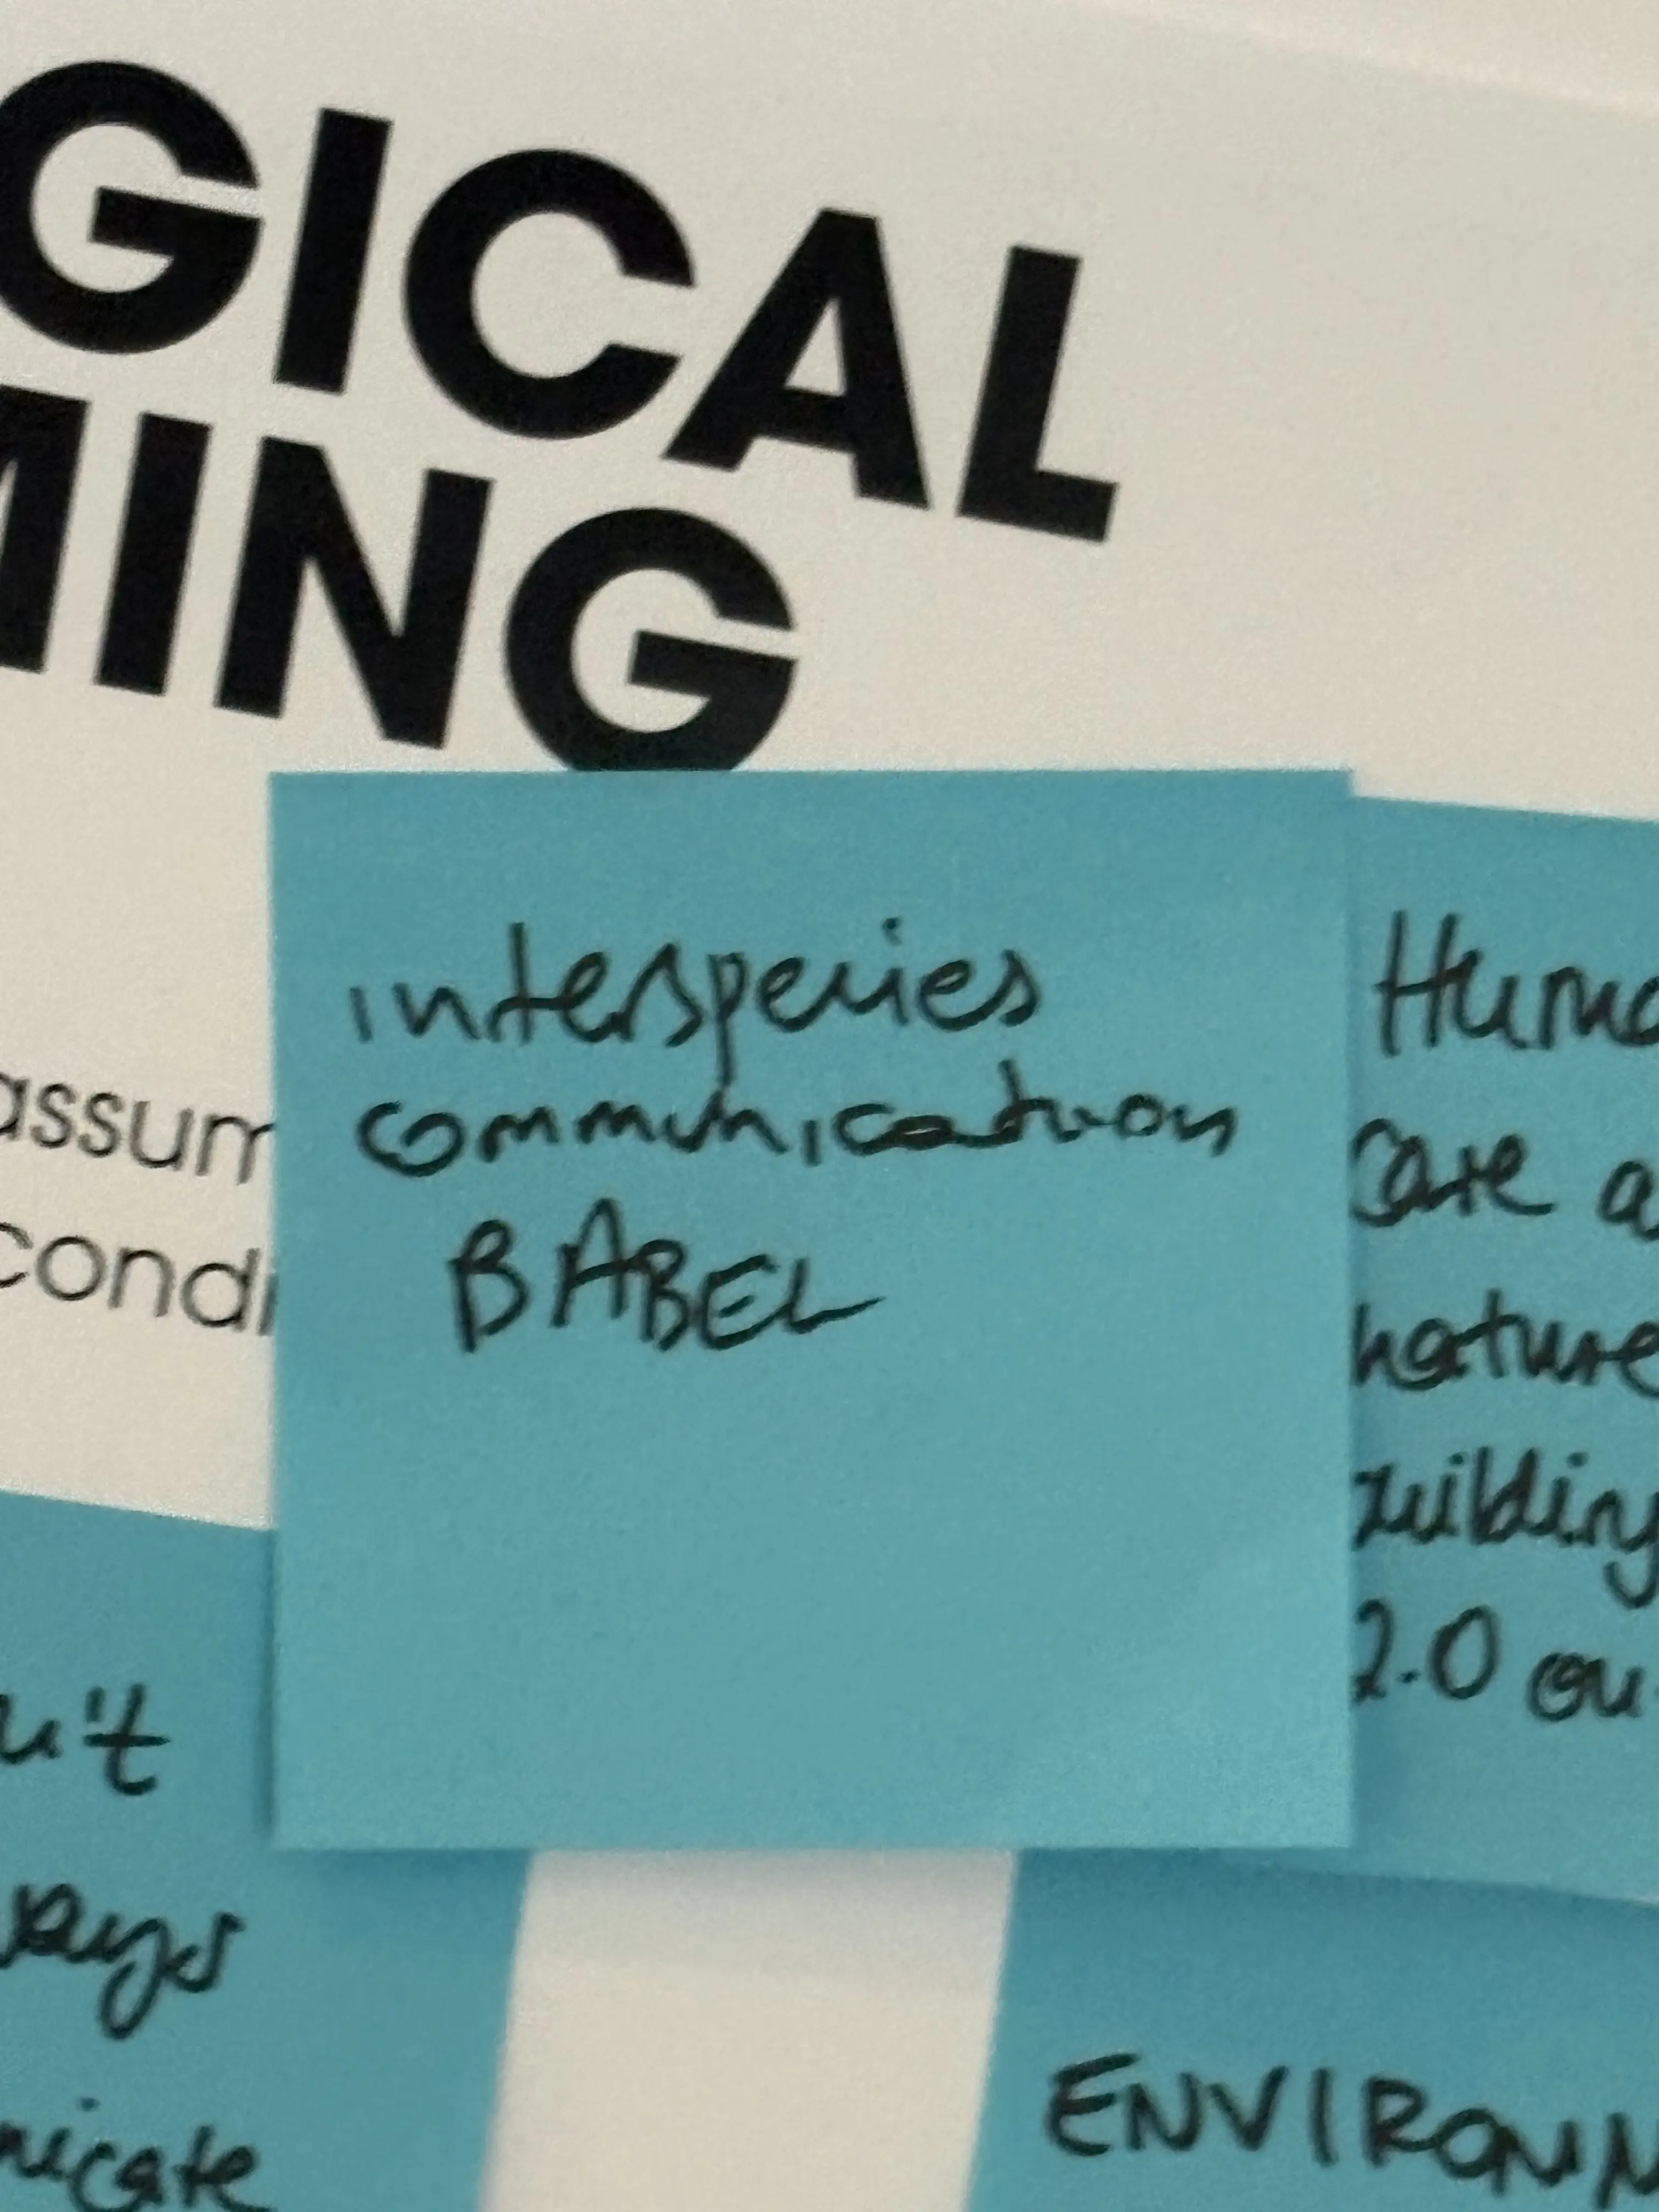 GICAL
MING
assum
condi
interspecies
communication
BABEL
Huma
Care a
nature
building
2.0 ou
n't
ways
nicate
ENVIRONM